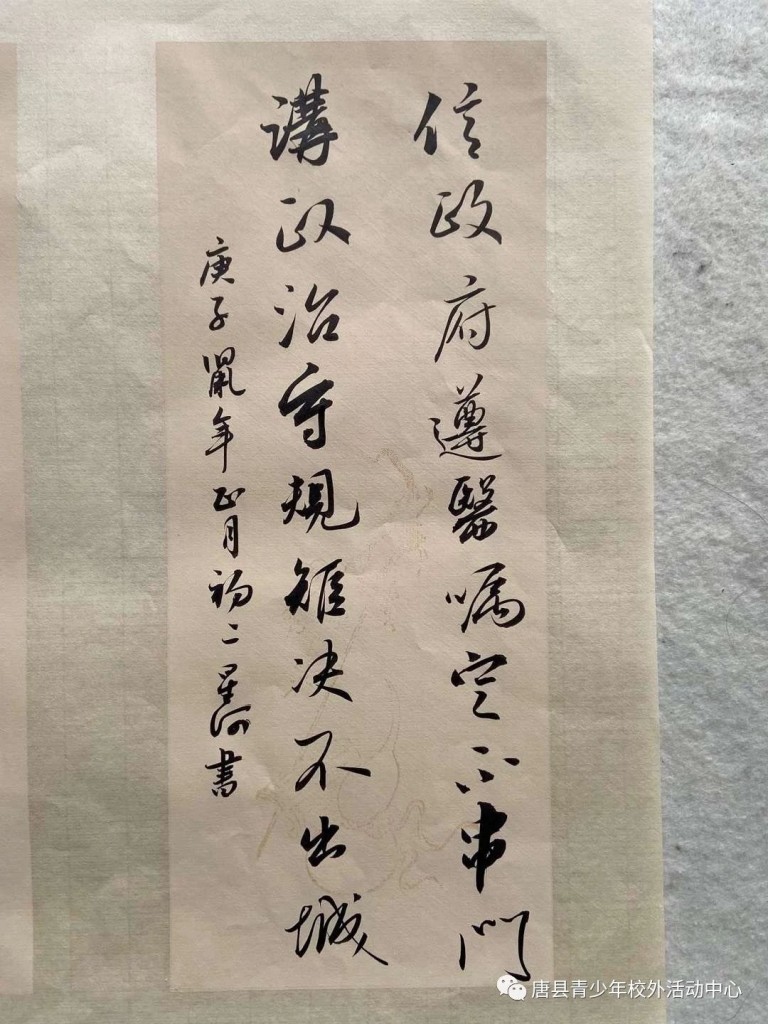 信政府遵醫嘱定不串門
講政治守規矩决不出城
庚子鼠年正月初二星河書
唐县青少年校外活动中心